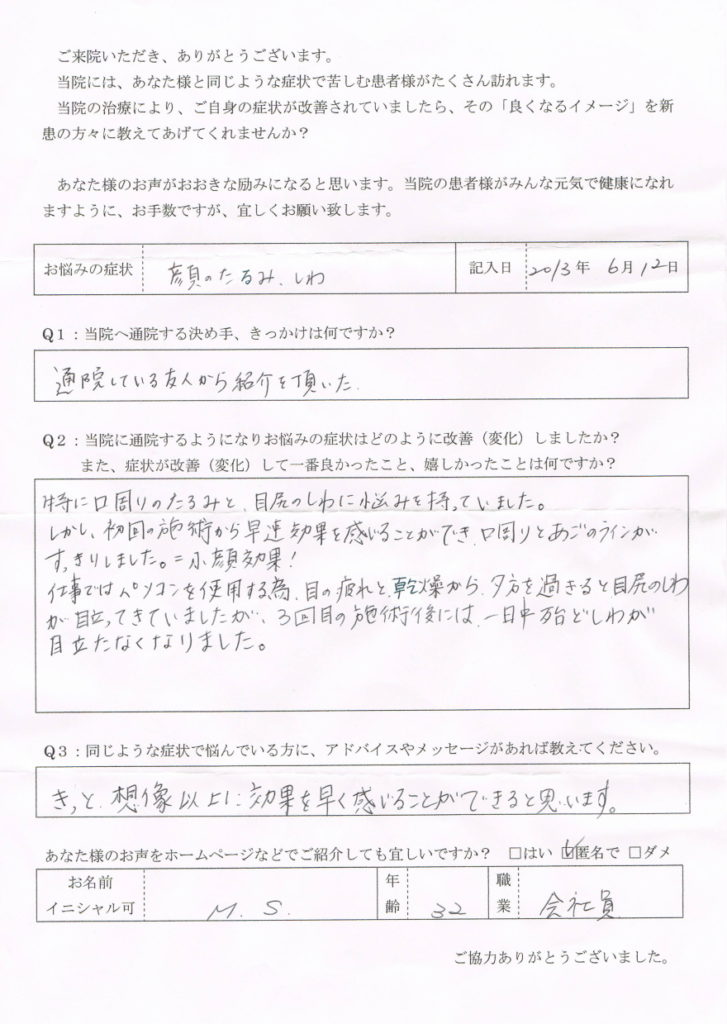 ご来院いただき、ありがとうございます。
当院には、あなた様と同じような症状で苦しむ患者様がたくさん訪れます。
当院の治療により、ご自身の症状が改善されていましたら、その「良くなるイメージ」を新
患の方々に教えてあげてくれませんか？
あなた様のお声がおおきな励みになると思います。当院の患者様がみんな元気で健康になれ
ますように、お手数ですが、宜しくお願い致します。
お悩みの症状 顔のたるみ、しわ 記入日 2013年 6月12日
Q1：当院へ通院する決め手、きっかけは何ですか？
通院している友人から紹介を頂いた。
Q2：当院に通院するようになりお悩みの症状はどのように改善（変化）しましたか？
また、症状が改善（変化）して一番良かったこと、嬉しかったことは何ですか？
特に口周りのたるみと、目尻のしわに悩みを持っていました。
しかし、初回の施術から早速効果を感じることができ、口周りとあごのラインが
すっきりしました。=小顔効果！
仕事ではパソコンを使用する為、目の疲れと、乾燥から、夕方を過ぎると目尻のしわ
が目立ってきていましたが、3回目の施術後には、一日中殆どしわが
目立たなくなりました。
Q3：同じような症状で悩んでいる方に、アドバイスやメッセージがあれば教えてください。
きっと、想像以上に効果を早く感じることができると思います。
あなた様のお声をホームページなどでご紹介しても宜しいですか？ □はい ☑匿名で □ダメ
お名前 イニシャル可 M. S. 年齢 32 職業 会社員
ご協力ありがとうございました。